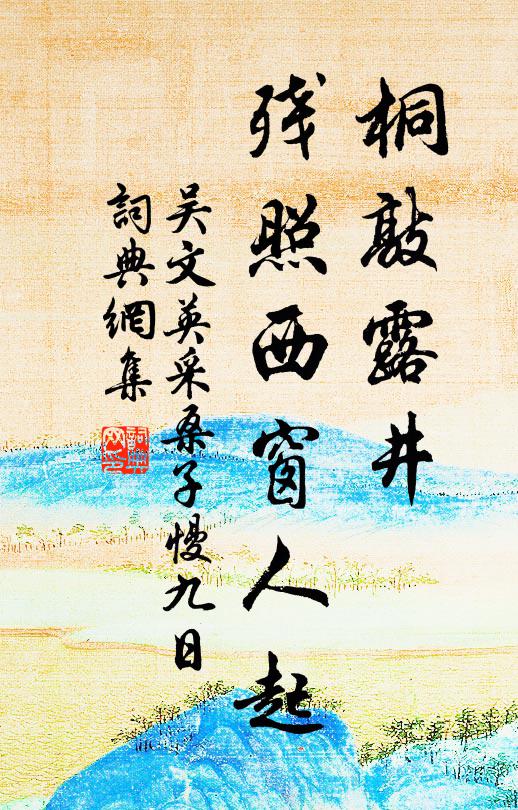 桐敲露井
殘照西窗人起
吴文英采桑子慢九日
詞典網集